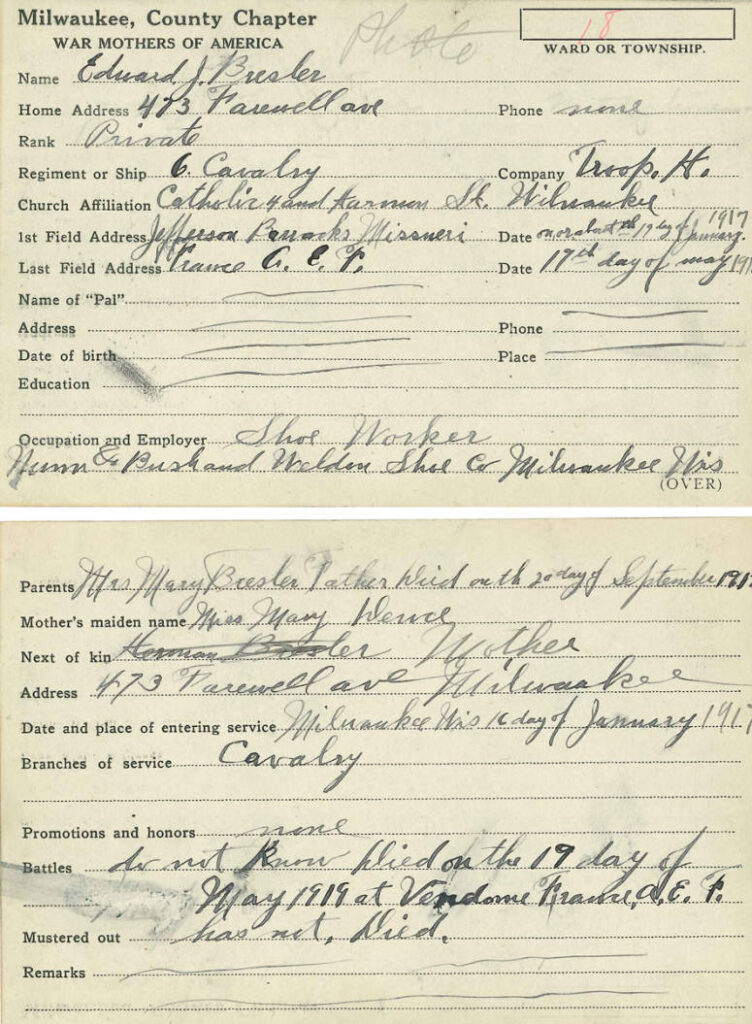 Milwaukee, County Chapter
WAR MOTHERS OF AMERICA
Photo
18
WARD OR TOWNSHIP.
Name Eduard J. Bresler
Home Address 473 Farewell ave Phone none
Rank Private
Regiment or Ship 6. Cavalry Company Troop. H.
Church Affiliation Catholic 4 and Harmon St. Wilwaukee
1st Field Address Jefferson Barrocks Missueri Date on or about th 17 day of January. 1917
Last Field Address France A. E. F. Date 17th day of may 191
Name of "Pal"
Address Phone
Date of birth Place
Education
Occupation and Employer Shoe Worker
Nunn & Bush and Weldon Shoe Co Milwaukee Wis
(OVER)
Parents Mrs Mary Bresler Father Died on th 20 day of September 1917
Mother's maiden name Miss Mary
Next of kin Herman Bresler Mother
Address 473 Farewell ave Milwaukee
Date and place of entering service Milwaukee Wis 16 day of January 1917
Branches of service Cavalry
Promotions and honors none
Battles do not Know Died on the 19 day of
May 1919 at Vendome France, A. E. F.
Mustered out has not, Died.
Remarks